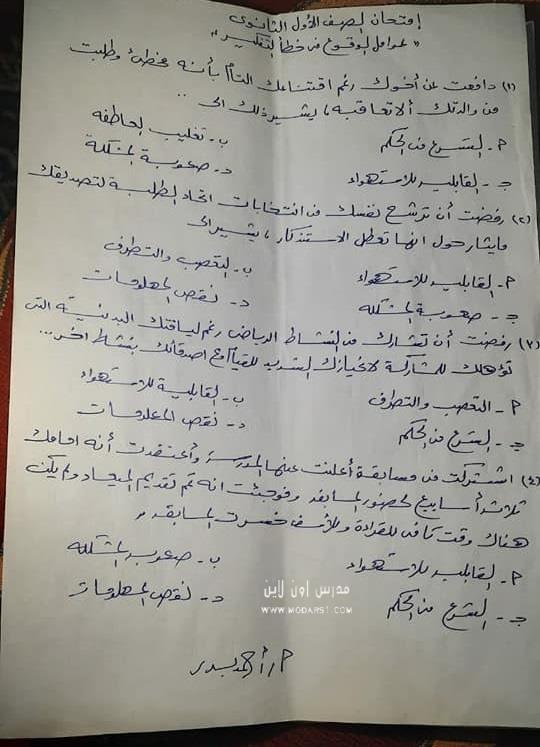 إمتحان الصف الأول الثانوى
"عوامل الوقوع فى خطأ التفكير"
(١) دافعت عن أخوك رغم اقتناعك التام بأنه مخطئ وطلبت
من والدتك ألا تعاقبه، يشير ذلك الى ..
٢- التسرع فى الحكم
ب- تغليب العاطفه
ج- القابليه للاستهواء
د- صعوبة المشكلة
(٢) رفضت أن ترشح نفسك فى انتخابات اتحاد الطلبة لتصديقك
مايشار حول انها تعطل الاستذكار، يشير الى
٢- القابليه للاستهواء
ب- التعصب والتطرف
ج- صعوبة المشكله
د- نقص المعلومات
(٣) رفضت أن تشارك فى النشاط الرياضى رغم لياقتك البدنية التى
تؤهلك للمشاركة لانحيازك الشديد للقيام مع اصدقائك بنشاط اخر...
٢- التعصب والتطرف
ب- القابلية للاستهواء
ج- التسرع فى الحكم
د- نقص المعلومات
(٤) اشتركت فى مسابقة أعلنت عنها المدرسة وأعتقدت أنه امامك
ثلاثة أسابيع لحضور المسابقه وفوجئت انه تم تقديم الميعاد ولم يكن
هناك وقت كافى للقراءة وللأسف خسرت المسابقه
٢- القابليه للاستهواء
ب- صعوبه المشكله
ج- التسرع فى الحكم
د- نقص المعلومات
مدرس اون لاين
WWW.MODARS1.COM